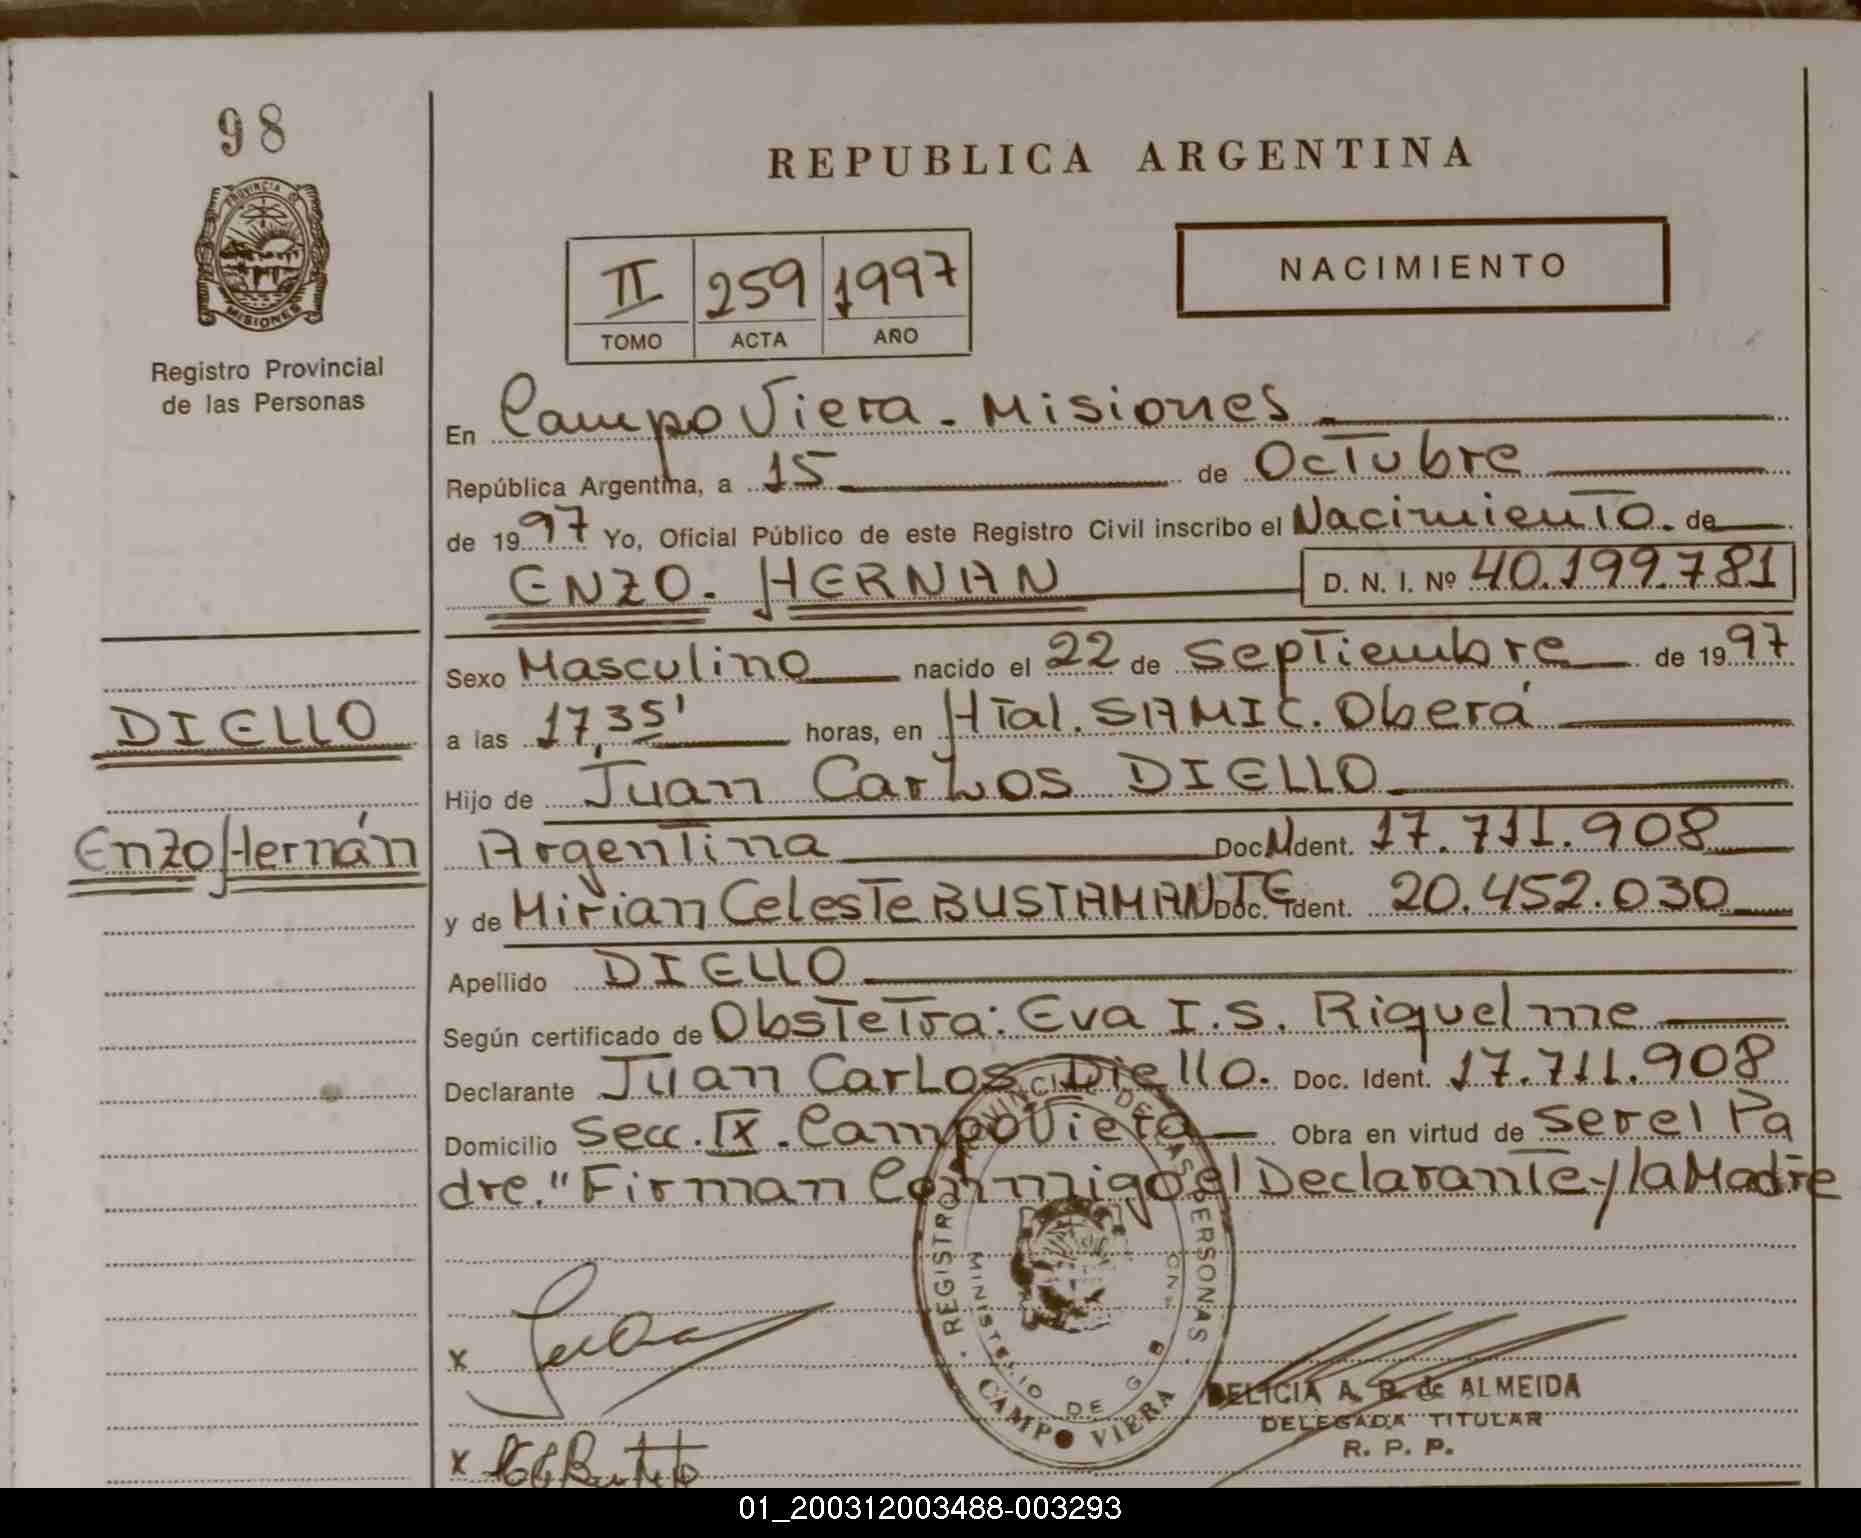 98
REPUBLICA ARGENTINA
PROVINCIA DE
MISIONES
II 259 1997
TOMO ACTA AÑO
NACIMIENTO
Registro Provincial
de las Personas
En Campo Viera - Misiones
República Argentina, a 15 de Octubre
de 1997 Yo, Oficial Público de este Registro Civil inscribo el Nacimiento. de
ENZO. HERNAN D. N. I. Nº 40.199.781
Sexo Masculino nacido el 22 de Septiembre de 1997
DIELLO
a las 17,35' horas, en Htal. SAMIC. Oberá
Hijo de Juan Carlos DIELLO
Enzo Hernán
Argentina Doc. Ident. 17.711.908
y de Mirian Celeste BUSTAMANTE Doc. Ident. 20.452.030
Apellido DIELLO
Según certificado de Obstetra: Eva I. S. Riquelme
Declarante Juan Carlos Diello. Doc. Ident. 17.711.908
Domicilio Secc. IX. Campo Viera Obra en virtud de ser el Pa
dre." Firman Conmigo el Declarante y la Madre
REGISTRO PROVINCIAL DE LAS PERSONAS
MINISTERIO DE G
CAMPO VIERA
x
DELICIA A. B. de ALMEIDA
DELEGADA TITULAR
R. P. P.
x
01_200312003488-003293